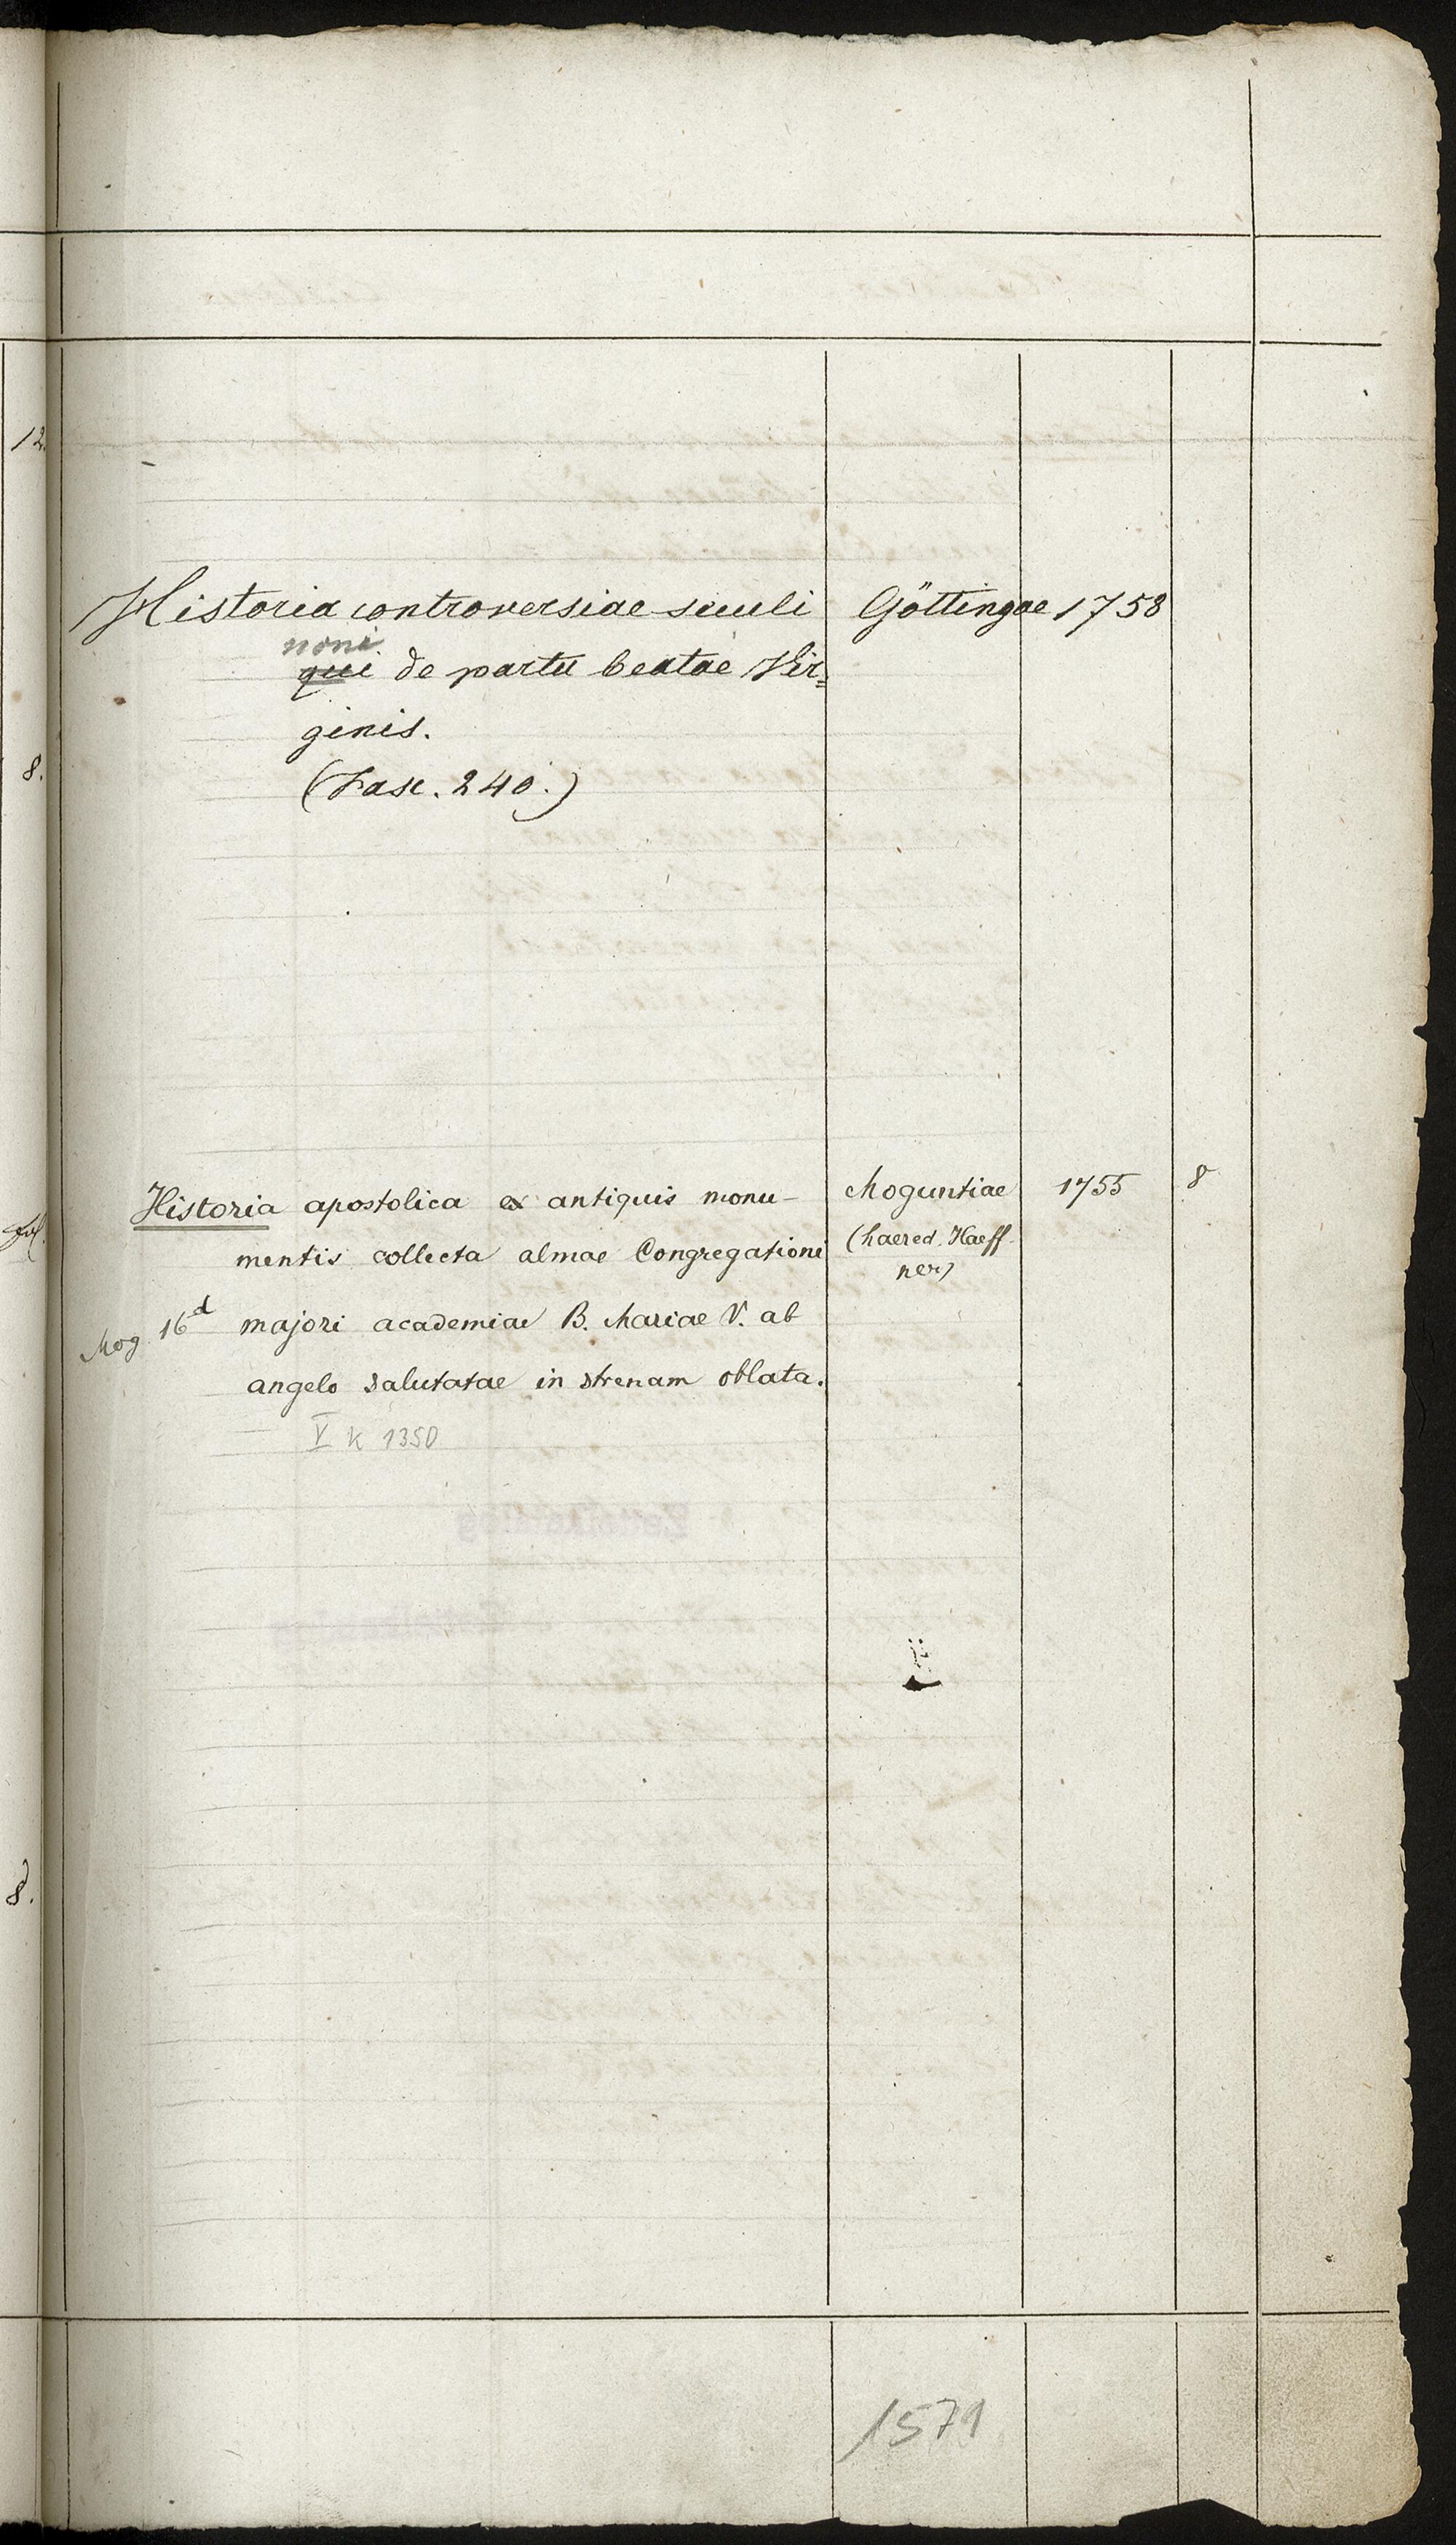 12.
Historia controversiae seculi Göttingae 1758
noni
qui de partu beatae Vir=
ginis.
8.
(Fasc. 240.)
Historia apostolica ex antiquis monu- Moguntiae 1755 8
mentis collecta almae Congregationi (haered. Haeff-
ner)
Mog. 16d majori academiae B. Mariae V. ab
angelo salutatae in strenam oblata.
V k 1350
8.
1571